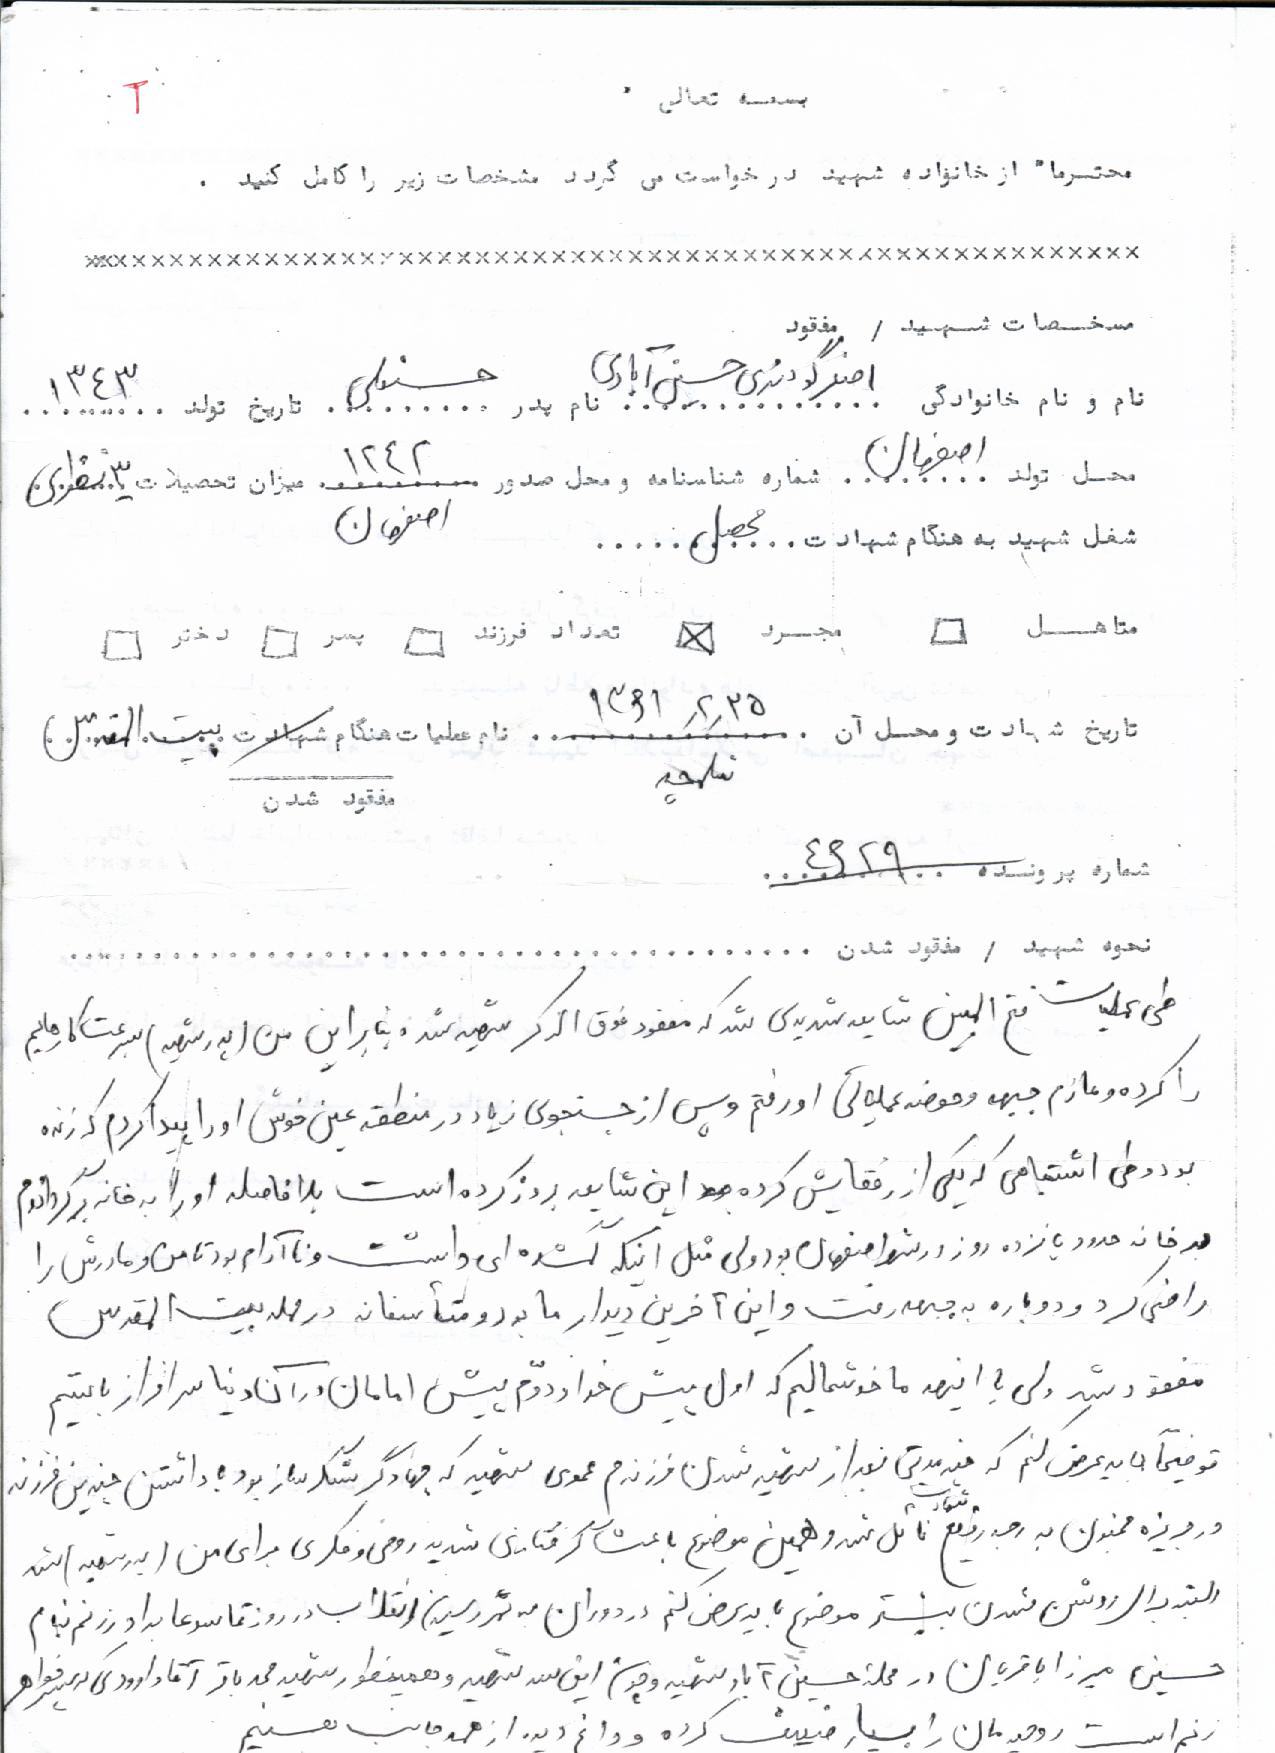 ۲
بسمه تعالی
محترما" از خانواده شهید درخواست می گردد مشخصات زیر را کامل کنید .
××××××××××××××××××××××××××××××××××××××××××××××××××××××××
مشخصات شهید / مفقود
نام و نام خانوادگی اصغر گودرزی حسین آبادی نام پدر حسنعلی تاریخ تولد ۱۳۴۳
محل تولد اصفهان شماره شناسنامه و محل صدور ۱۲۴۲ اصفهان میزان تحصیلات ۳ نظری
شغل شهید به هنگام شهادت محصل
متاهل □ مجرد ☒ تعداد فرزند □ پسر □ دختر □
تاریخ شهادت و محل آن ۱۳۶۱/۲/۲۵ شلمچه نام عملیات هنگام شهادت بیت المقدس
مفقود شدن
شماره پرونده ۴۶۲۹
نحوه شهید / مفقود شدن
طی عملیات فتح المبین شایعه شدیدی شد که مفقود فوق الذکر شهید شده بنابراین من (پدر شهید) سرعت کارهایم
را کرده و عازم جبهه و حوضه عملیاتی او رفتم و پس از جستجوی زیاد در منطقه عین خوش او را پیدا کردم که زنده
بود و طی اشتباهی که یکی از رفقایش کرده بود این شایعه بروز کرده است بلافاصله او را به خانه برگرداندم
به خانه حدود پانزده روز در شهر اصفهان بود ولی مثل اینکه گمشده ای داشت و نا آرام بود تا من و مادرش را
راضی کرد و دوباره به جبهه رفت و این آخرین دیدار ما بود و متأسفانه در حمله بیت المقدس
مفقود شد ولی با اینهمه ما خوشحالیم که اول پیش خدا و دوّم پیش امامان در آن دنیا سرافراز باشیم
توضیحاً باید عرض کنم که چند مدتی بعد از شهید شدن فرزندم عموی شهید که جهادگر سنگرساز بود با داشتن چندین فرزند
در جزیره مجنون به درجه رفیع شهادت نائل شد و همین موضوع باعث گرفتاری شدید روحی و فکری برای من (پدر شهید) شد
البته برای روشن شدن بیشتر موضوع باید عرض کنم در دوران به ثمر رسیدن انقلاب در روز تاسوعا برادر زنم بنام
حسین میرزا باقریان در محله حسین آباد شهید و چون این سه شهید و همینطور شهید محمد باقر آقاداودی که پسر خواهر
زنم است روحیه مان را بسیار ضعیف کرده و داغ دیده از همه جانب هستیم